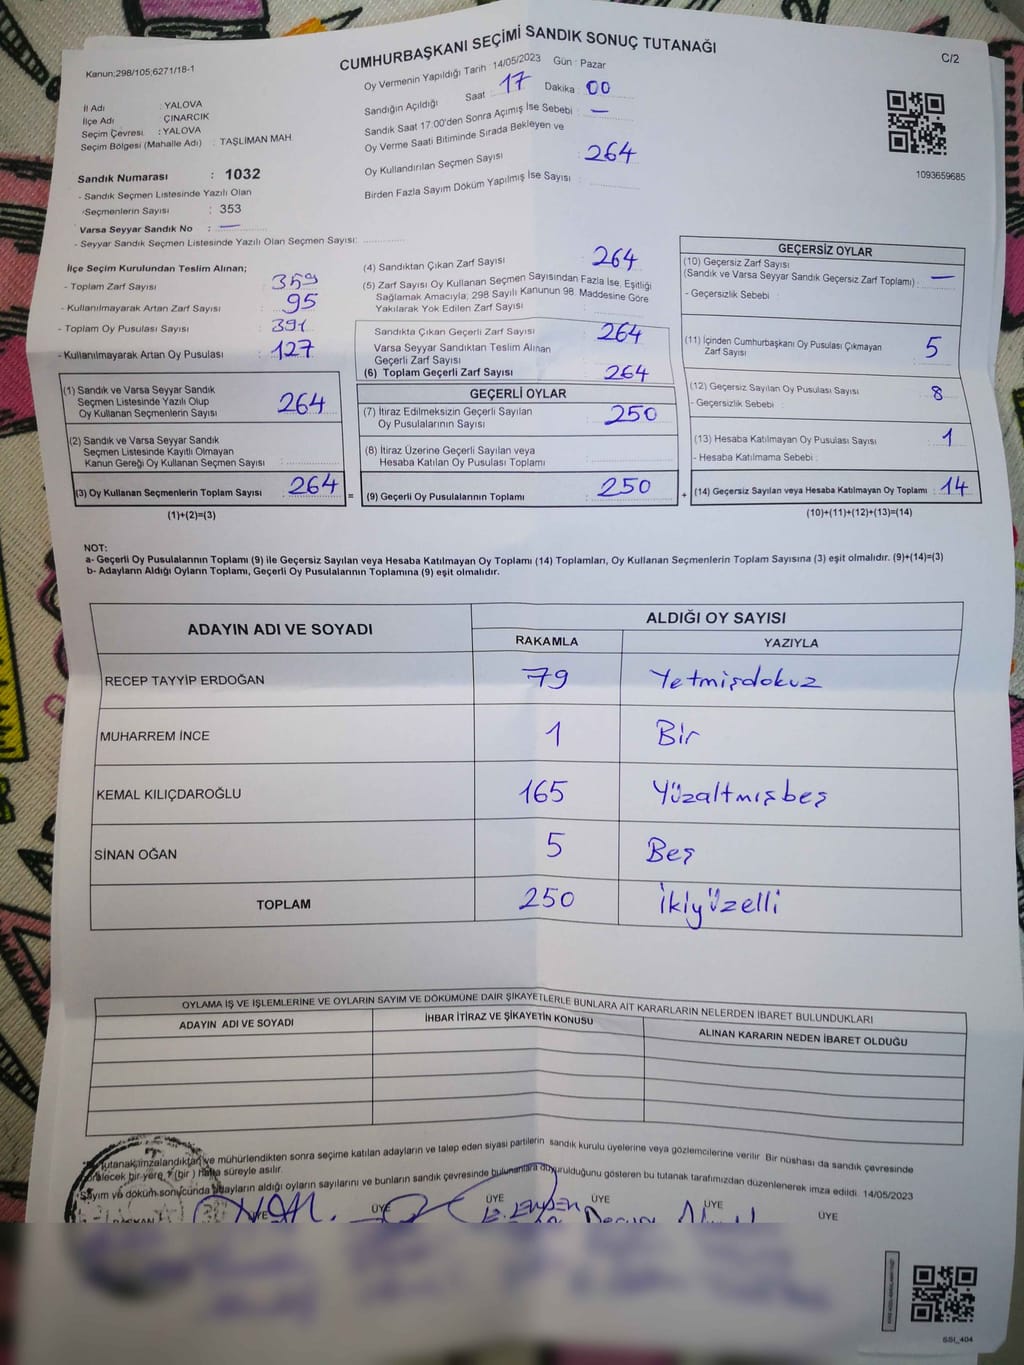 Kanun;298/105;6271/18-1
CUMHURBAŞKANI SEÇİMİ SANDIK SONUÇ TUTANAĞI
C/2
Oy Vermenin Yapıldığı Tarih 14/05/2023 Gün : Pazar
İl Adı : YALOVA
İlçe Adı : ÇINARCIK
Seçim Çevresi : YALOVA
Seçim Bölgesi (Mahalle Adı) : TAŞLIMAN MAH
Sandığın Açıldığı Saat : 17 Dakika : 00
Sandık Saat 17:00'den Sonra Açımış İse Sebebi : —
Oy Verme Saati Bitiminde Sırada Bekleyen ve
Oy Kullandırılan Seçmen Sayısı : 264
Birden Fazla Sayım Döküm Yapılmış İse Sayısı :
1093659685
Sandık Numarası : 1032
- Sandık Seçmen Listesinde Yazılı Olan
Seçmenlerin Sayısı : 353
Varsa Seyyar Sandık No : —
- Seyyar Sandık Seçmen Listesinde Yazılı Olan Seçmen Sayısı:
İlçe Seçim Kurulundan Teslim Alınan;
- Toplam Zarf Sayısı : 359
- Kullanılmayarak Artan Zarf Sayısı : 95
- Toplam Oy Pusulası Sayısı : 391
- Kullanılmayarak Artan Oy Pusulası : 127
(1) Sandık ve Varsa Seyyar Sandık
Seçmen Listesinde Yazılı Olup
Oy Kullanan Seçmenlerin Sayısı : 264
(2) Sandık ve Varsa Seyyar Sandık
Seçmen Listesinde Kayıtlı Olmayan
Kanun Gereği Oy Kullanan Seçmen Sayısı :
(3) Oy Kullanan Seçmenlerin Toplam Sayısı : 264 =
(1)+(2)=(3)
(4) Sandıktan Çıkan Zarf Sayısı : 264
(5) Zarf Sayısı Oy Kullanan Seçmen Sayısından Fazla İse, Eşitliği
Sağlamak Amacıyla; 298 Sayılı Kanunun 98. Maddesine Göre
Yakılarak Yok Edilen Zarf Sayısı :
Sandıkta Çıkan Geçerli Zarf Sayısı : 264
Varsa Seyyar Sandıktan Teslim Alınan
Geçerli Zarf Sayısı :
(6) Toplam Geçerli Zarf Sayısı : 264
GEÇERLİ OYLAR
(7) İtiraz Edilmeksizin Geçerli Sayılan
Oy Pusulalarının Sayısı : 250
(8) İtiraz Üzerine Geçerli Sayılan veya
Hesaba Katılan Oy Pusulası Toplamı :
(9) Geçerli Oy Pusulalarının Toplamı : 250 +
GEÇERSİZ OYLAR
(10) Geçersiz Zarf Sayısı
(Sandık ve Varsa Seyyar Sandık Geçersiz Zarf Toplamı) : —
- Geçersizlik Sebebi :
(11) İçinden Cumhurbaşkanı Oy Pusulası Çıkmayan
Zarf Sayısı : 5
(12) Geçersiz Sayılan Oy Pusulası Sayısı : 8
- Geçersizlik Sebebi :
(13) Hesaba Katılmayan Oy Pusulası Sayısı : 1
- Hesaba Katılmama Sebebi :
(14) Geçersiz Sayılan veya Hesaba Katılmayan Oy Toplamı : 14
(10)+(11)+(12)+(13)=(14)
NOT:
a- Geçerli Oy Pusulalarının Toplamı (9) ile Geçersiz Sayılan veya Hesaba Katılmayan Oy Toplamı (14) Toplamları, Oy Kullanan Seçmenlerin Toplam Sayısına (3) eşit olmalıdır. (9)+(14)=(3)
b- Adayların Aldığı Oyların Toplamı, Geçerli Oy Pusulalarının Toplamına (9) eşit olmalıdır.
ADAYIN ADI VE SOYADI ALDIĞI OY SAYISI
RAKAMLA YAZIYLA
RECEP TAYYİP ERDOĞAN 79 Yetmişdokuz
MUHARREM İNCE 1 Bir
KEMAL KILIÇDAROĞLU 165 Yüzaltmışbeş
SİNAN OĞAN 5 Beş
TOPLAM 250 İkiyüzelli
OYLAMA İŞ VE İŞLEMLERİNE VE OYLARIN SAYIM VE DÖKÜMÜNE DAİR ŞİKAYETLERLE BUNLARA AİT KARARLARIN NELERDEN İBARET BULUNDUKLARI
ADAYIN ADI VE SOYADI İHBAR İTİRAZ VE ŞİKAYETİN KONUSU ALINAN KARARIN NEDEN İBARET OLDUĞU
tutanak imzalandıktan ve mühürlendikten sonra seçime katılan adayların ve talep eden siyasi partilerin sandık kurulu üyelerine veya gözlemcilerine verilir. Bir nüshası da sandık çevresinde
bir yere, 1 (bir) hafta süreyle asılır.
Sayım ve döküm sonucunda adayların aldığı oyların sayılarını ve bunların sandık çevresinde bulunanlara duyurulduğunu gösteren bu tutanak tarafımızdan düzenlenerek imza edildi. 14/05/2023
ÜYE ÜYE ÜYE ÜYE ÜYE ÜYE
SSI_404